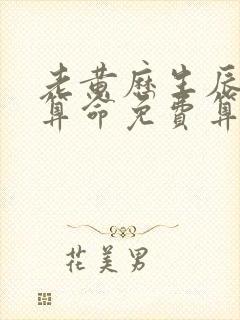 老黄历生辰
算命免费算
花美男